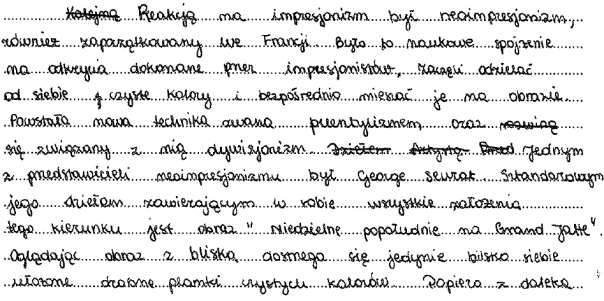 Kolejną Reakcją na impresjonizm był neoimpresjonizm,
również zapoczątkowany we Francji. Było to naukowe spojrzenie
na odkrycia dokonane przez impresjonistów, zaczęli oddzielać
od siebie czyste kolory i bezpośrednio mieszać je na obrazie.
Powstała nowa technika zwana puentylizmem oraz
się związany z nią dywizjonizm. Jednym
z przedstawicieli neoimpresjonizmu był George Seurat. Sztandarowym
jego dziełem zawierającym w sobie wszystkie założenia
tego kierunku jest obraz " Niedzielne popołudnie na Grand Jatte".
Oglądając obraz z bliska dostrzega się jedynie blisko siebie
ułożone drobne plamki czystych kolorów. Dopiero z daleka